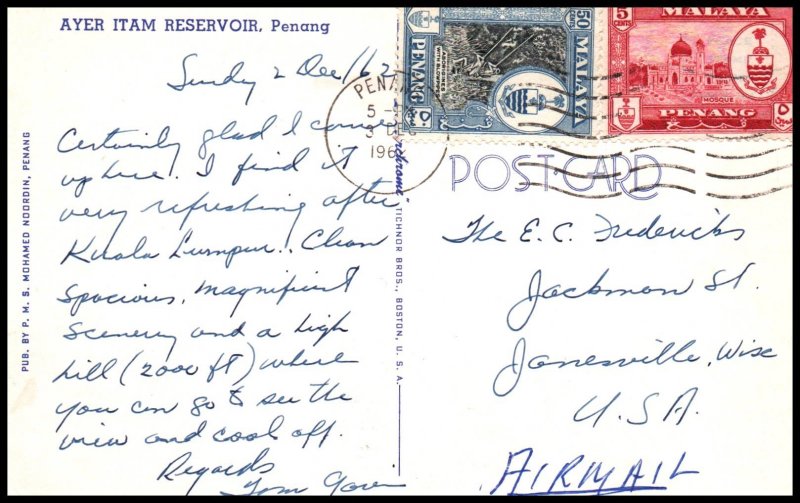 AYER ITAM RESERVOIR, Penang
Sunday 2 Dec/62
Certainly glad I came
up here. I find it
very refreshing after
Kuala Lumpur.. Clean
spacious, magnificent
scenery and a high
hill (2000 ft) where
you can go to see the
view and cool off.
Regards
Tom
PUB. BY P. M. S. MOHAMED NOORDIN, PENANG
TICHNOR BROS., BOSTON, U. S. A.
50
CENTS
PENANG
MALAYA
5
CENTS
MALAYA
MOSQUE
PENANG
PENANG
196
POST CARD
The E. C. Fredericks
Jackman St.
Janesville, Wisc
U.S.A.
AIRMAIL